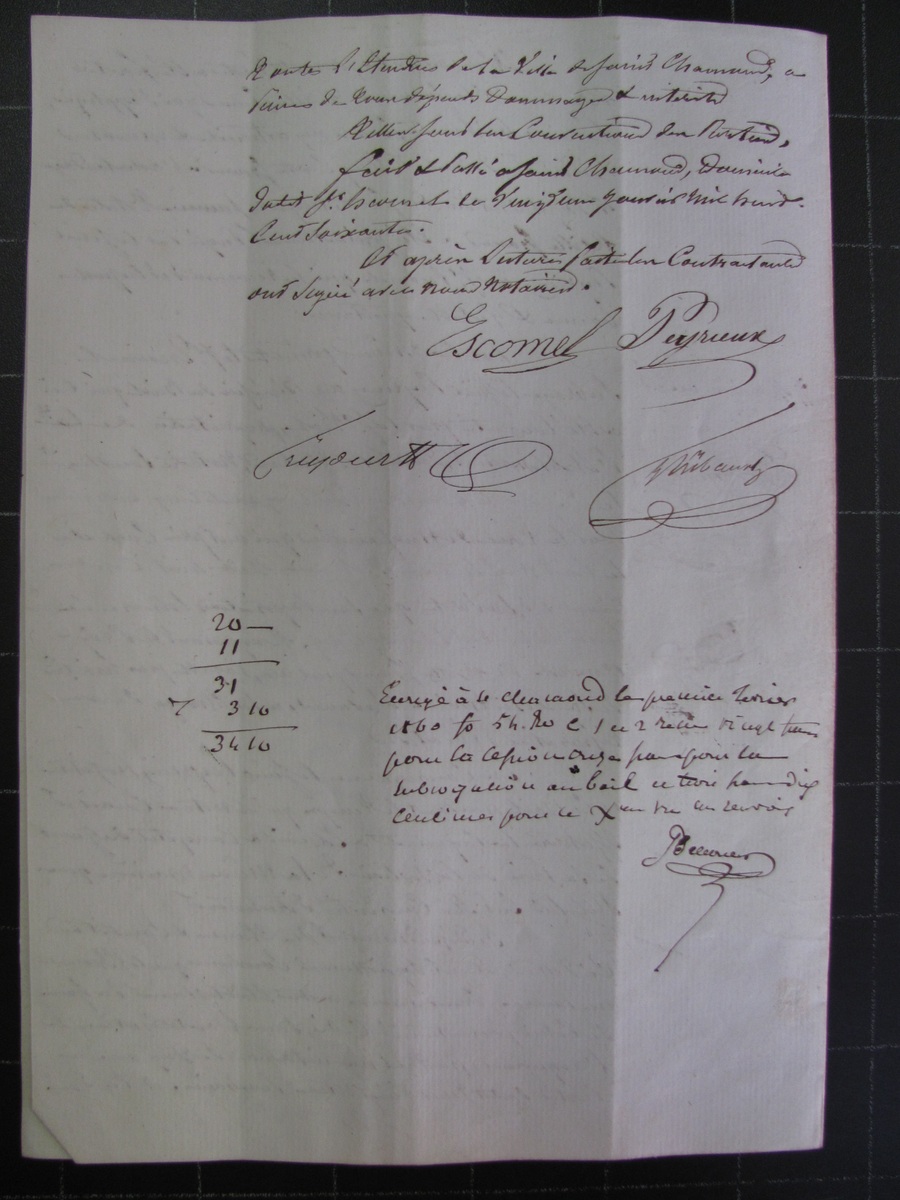 toute l'étendue de la Ville de Saint Chamond, a
peines de tous dépens Dommages & intérêts
Telles sont les Conventions des Parties,
fait & Passé a Saint Chamond, Domicile
dudit Sr. Escomel le Vingt un Janvier Mil huit
Cent Soixante.
Et après Lecture faite les Contractants
ont Signé avec nous Notaires.
Escomel Peyrieux
Thibaud
20 —
11
31
3 10
34 10
Enregé à St Chamond le premier Février
1860 fo 54. Ro C 1 et 2 reçu vingt francs
pour la cession onze francs pour la
subrogation au bail et trois francs dix
centimes pour le Xme un renvoi